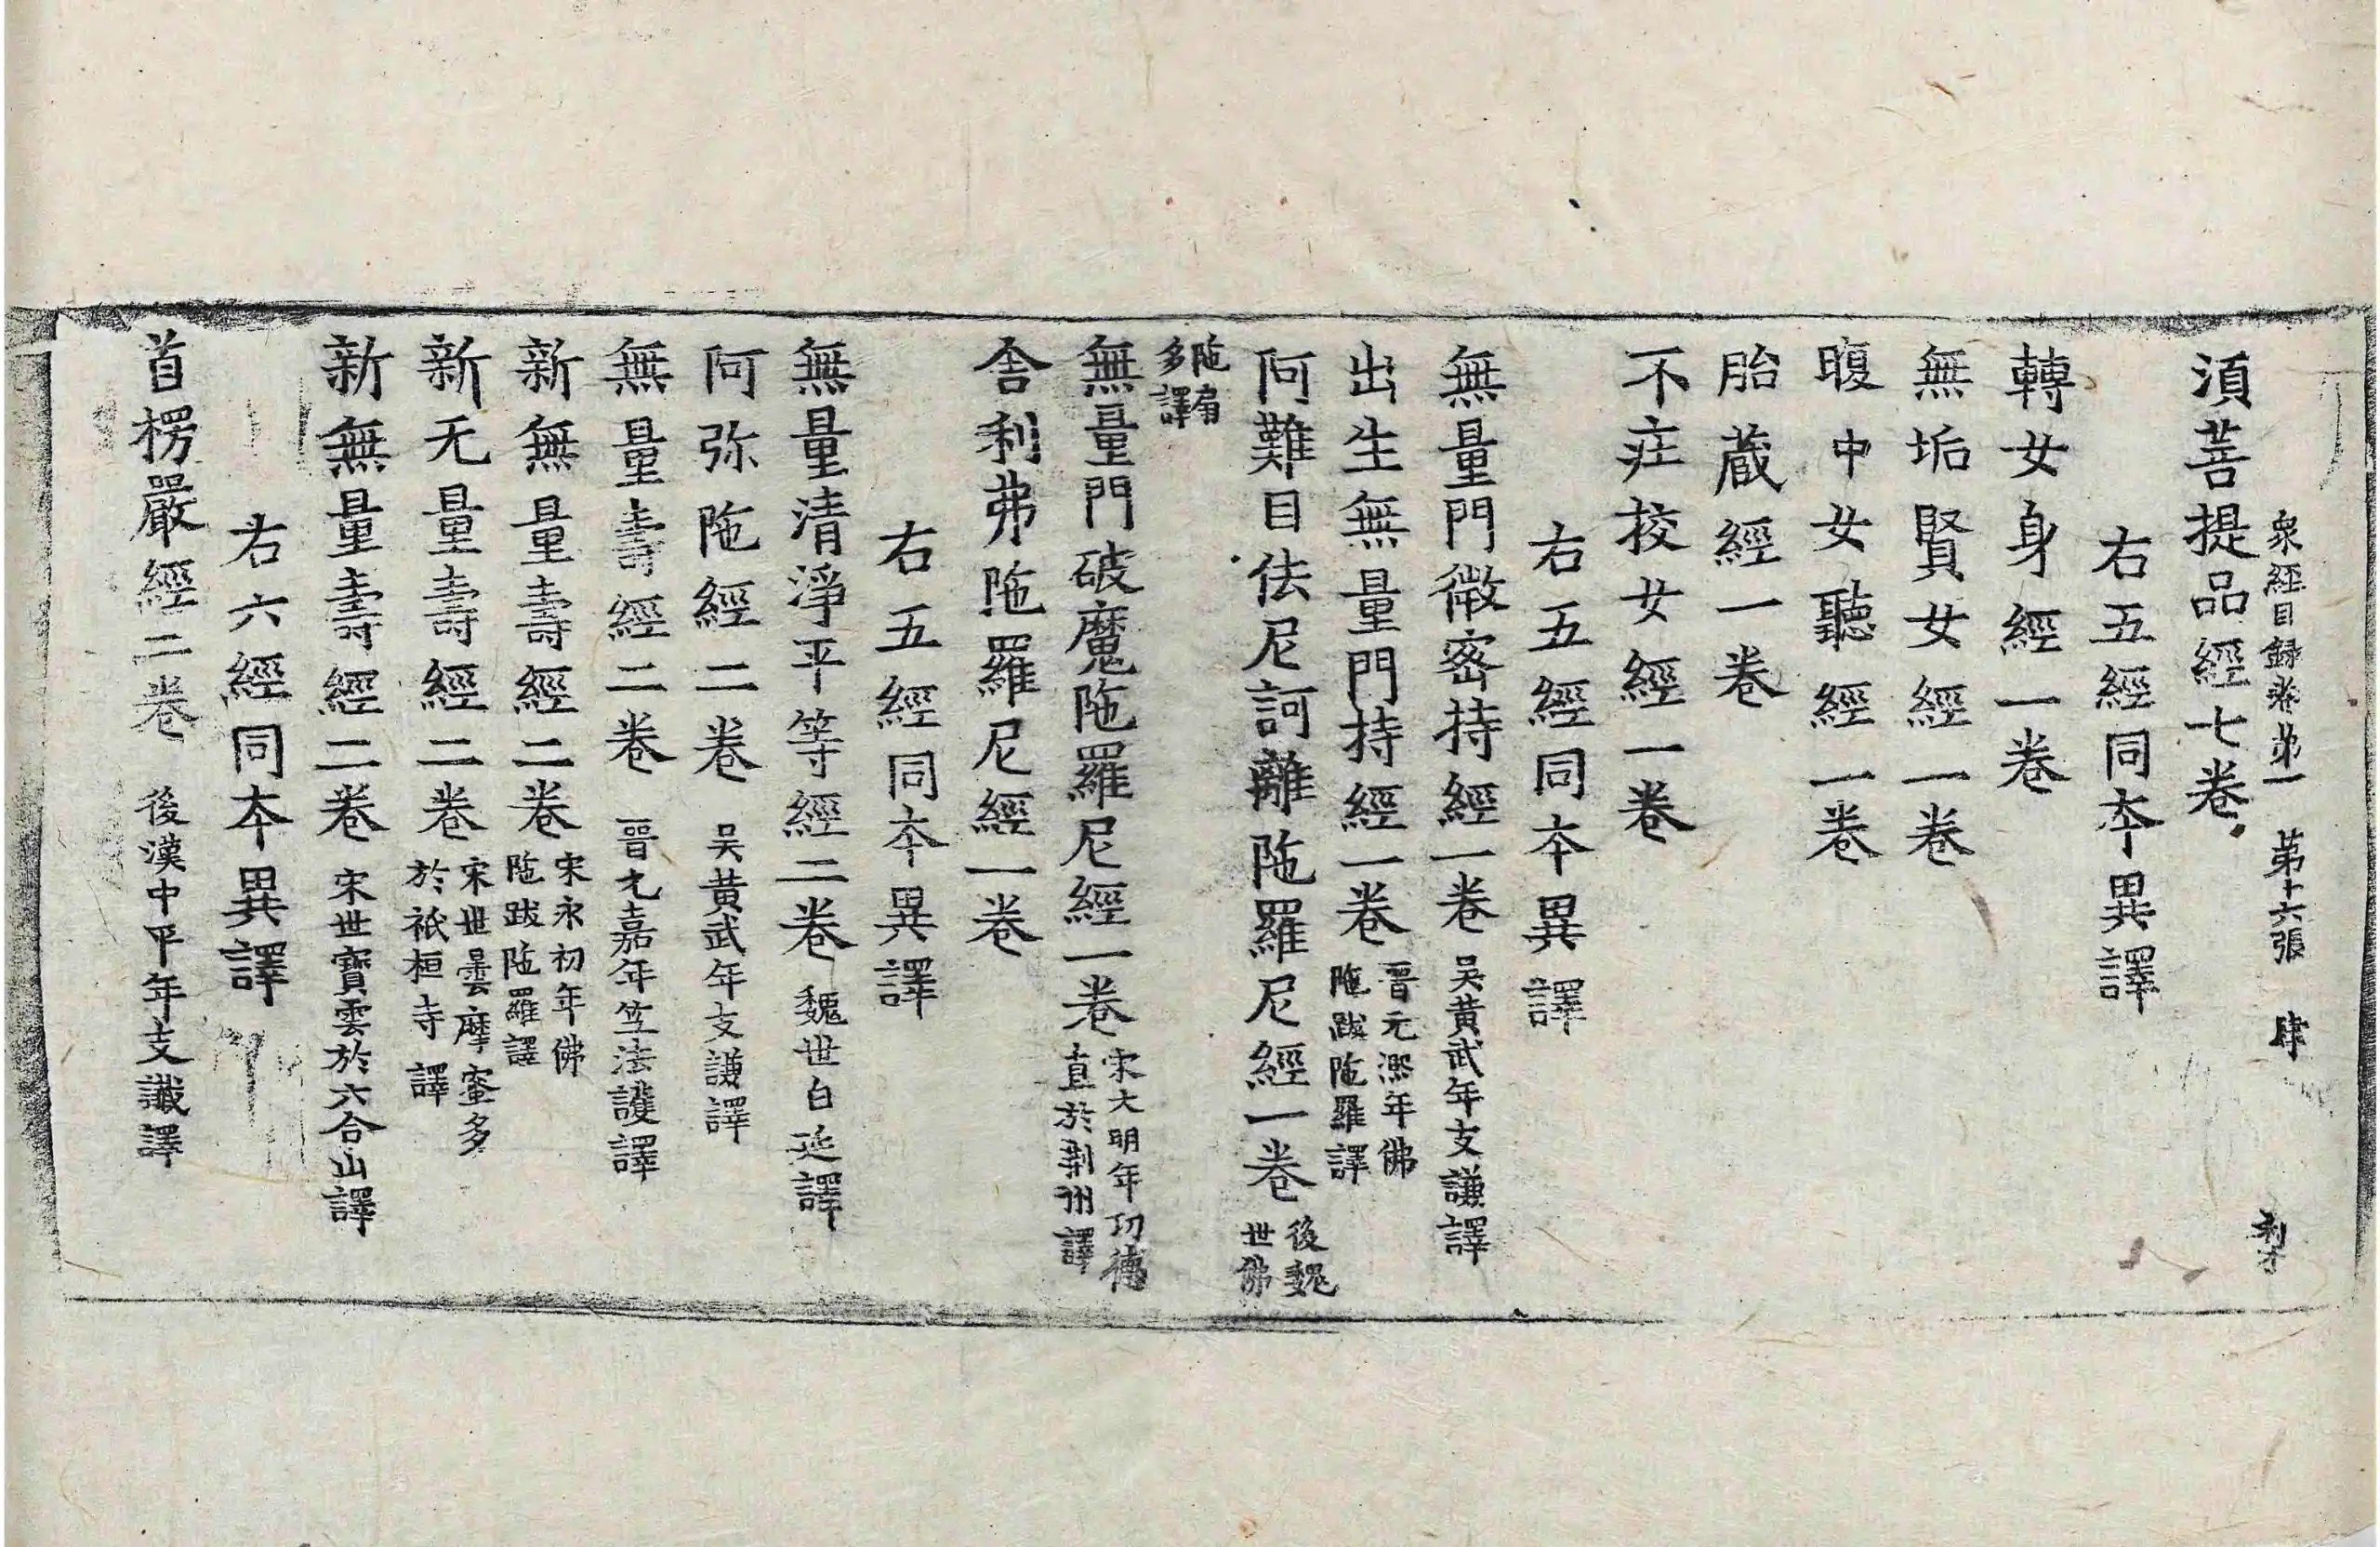 衆經目録卷第一 第十六張 肆
湏菩提品經七卷
右五經同夲異譯
轉女身經一卷
無垢賢女經一卷
腹中女聽經一卷
胎蔵經一卷
不庄挍女經一卷
右五經同夲異譯
無量門微密持經一卷 吴黄武年支謙譯
出生無量門持經一卷 晉元熈年佛陁跋陁羅譯
阿難目佉尼訶離陁羅尼經一卷 後魏世佛
陁扇多譯
無量門破魔陁羅尼經一卷 宋大明年功德直於荆州譯
舎利弗陁羅尼經一卷
右五經同夲異譯
無量清淨平等經二卷 魏世白延譯
阿弥陁經二卷 吴黄武年支謙譯
無量壽經二卷 晉元嘉年竺法護譯
新無量壽經二卷 宋永初年佛陁跋陁羅譯
新无量壽經二卷 宋世曇摩蜜多於祇桓寺譯
新無量壽經二卷 宋世寶雲於六合山譯
右六經同夲異譯
首楞嚴經二卷 後漢中平年支讖譯